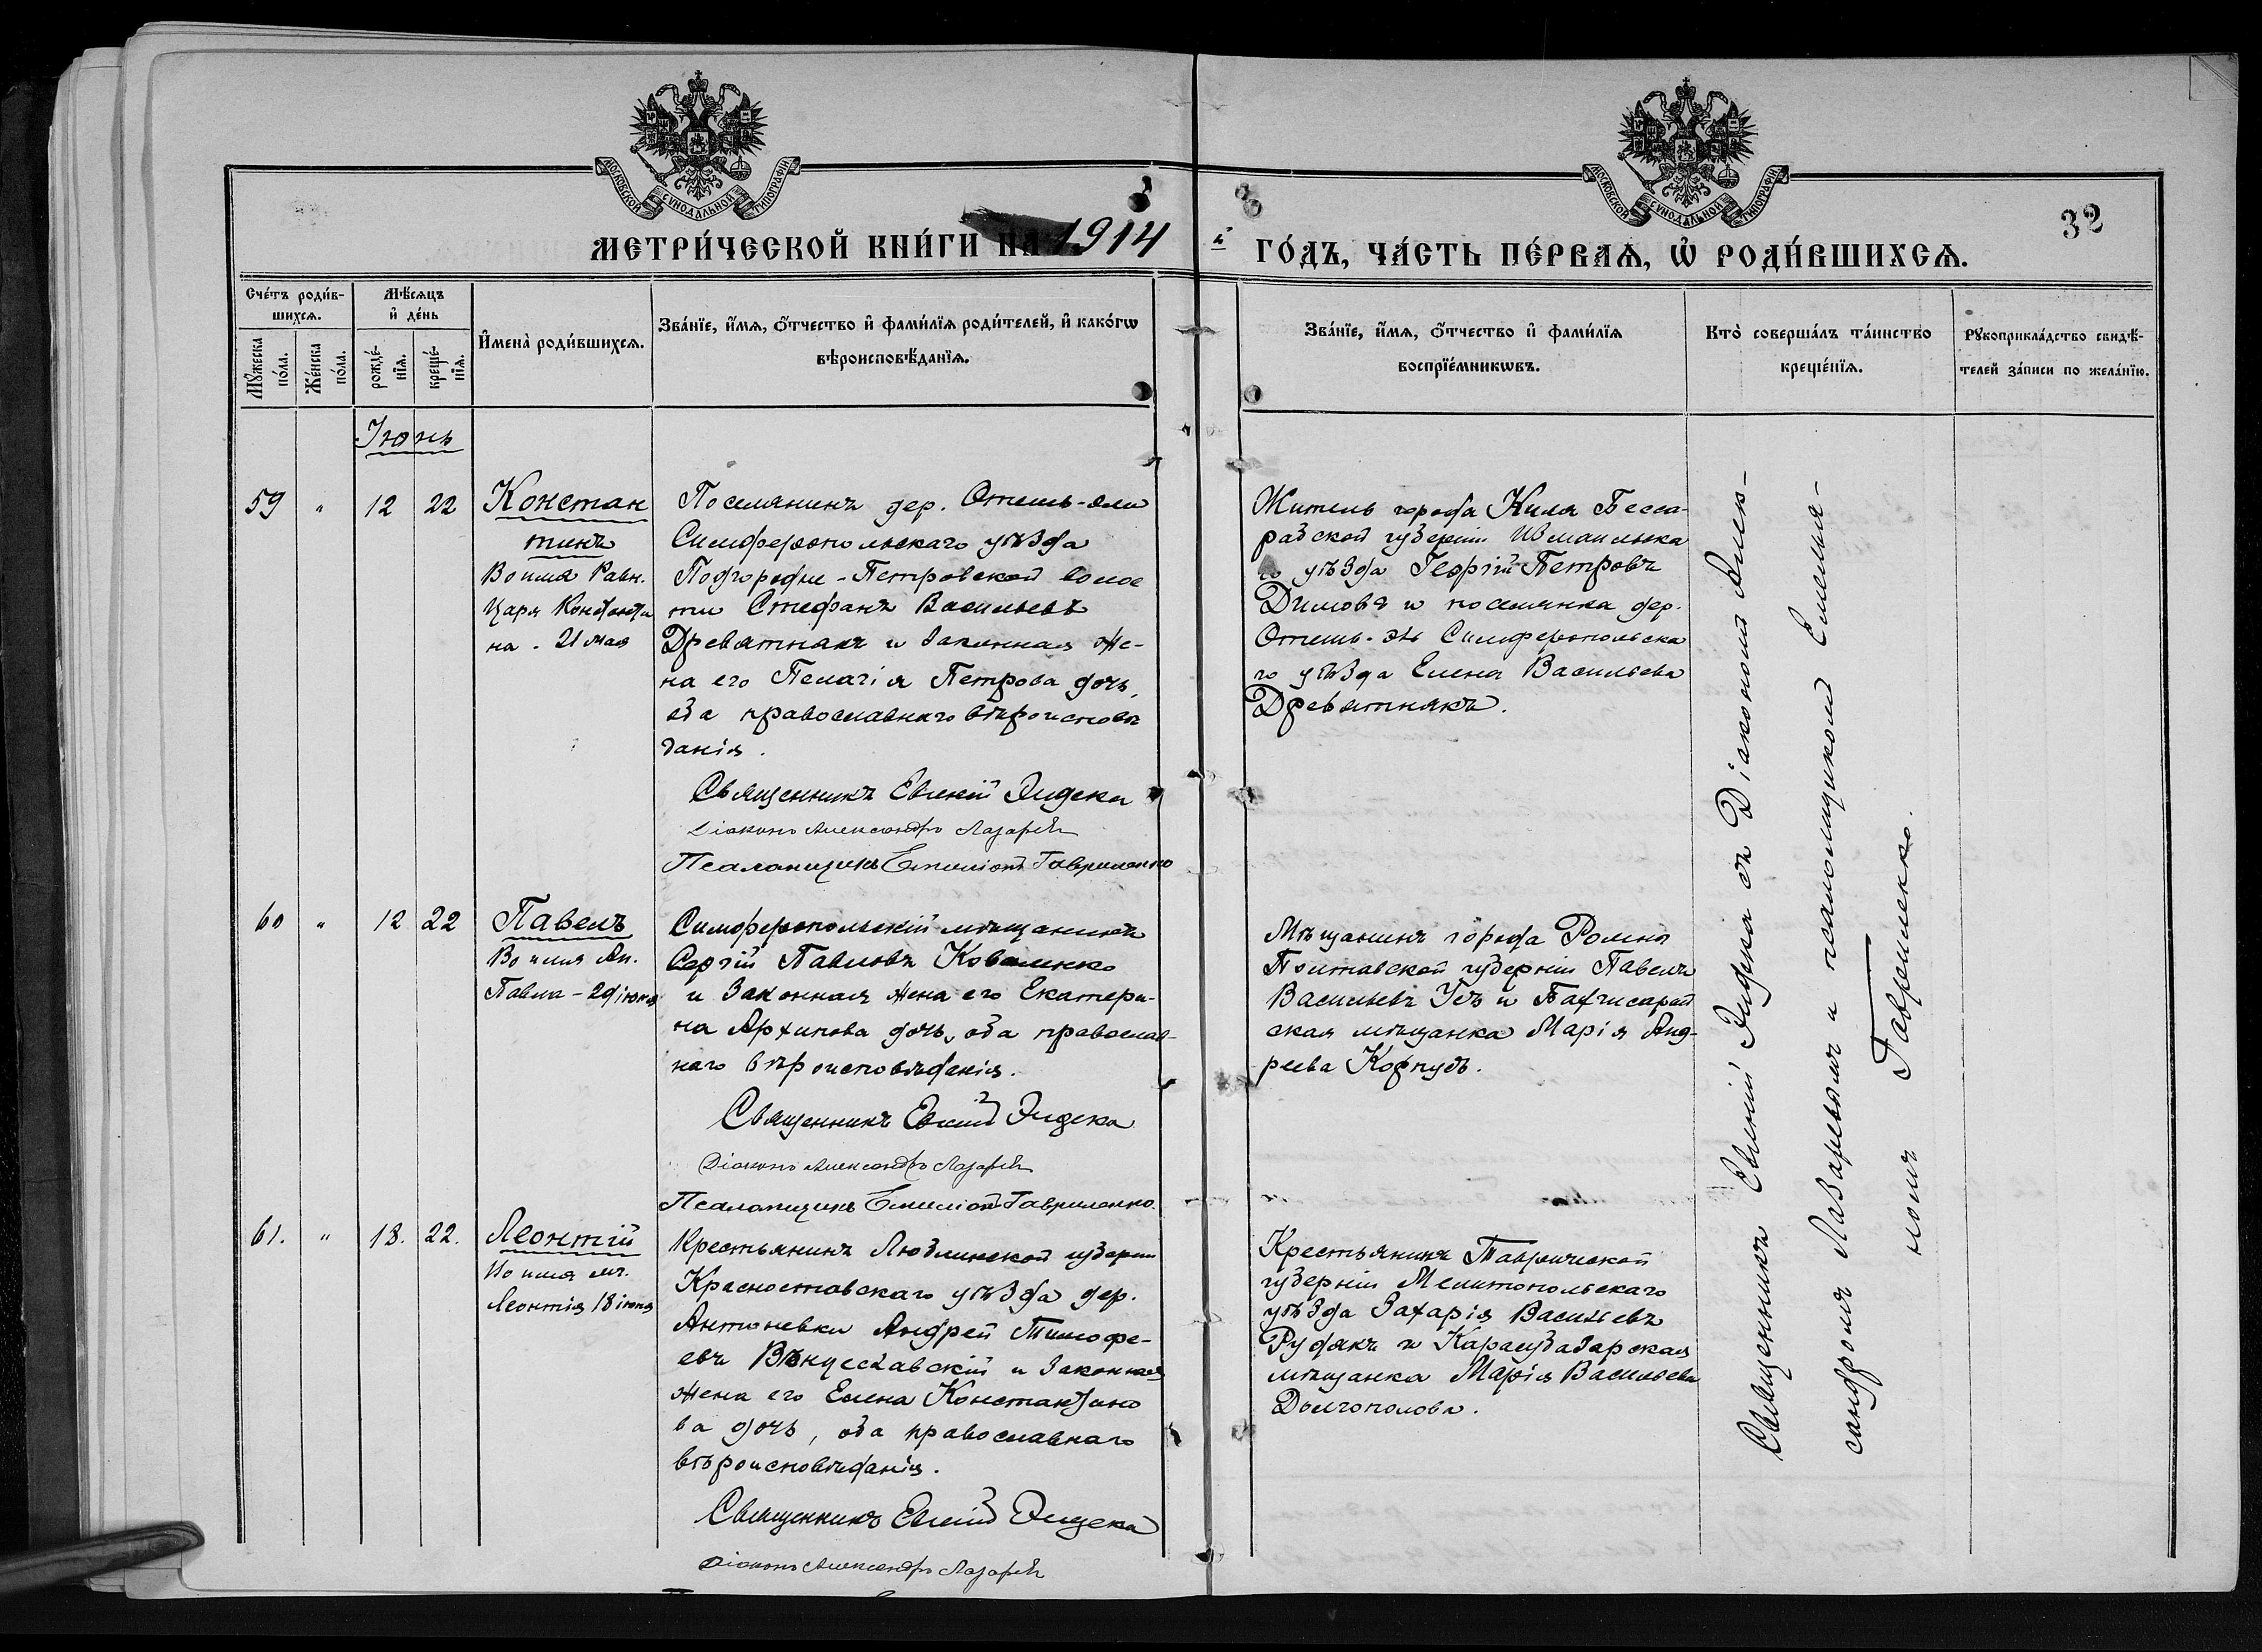 МОСКОВСКОЙ СѴНОДАЛЬНОЙ ТИПОГРАФІИ
МОСКОВСКОЙ СѴНОДАЛЬНОЙ ТИПОГРАФІИ
МЕТРИ́ЧЕСКОЙ КНИ́ГИ НА 1914
ГО́ДЪ, ЧА́СТЬ ПЕ́РВАѦ, Ѡ҆ РОДИ́ВШИХСѦ.
32
Сче́тъ роди́в-
шихсѧ.
Мѣ́сѧцъ
и҆ де́нь
Мꙋ́жеска
по́ла.
Же́нска
по́ла.
рожде́-
нїѧ.
креще́-
нїѧ.
И҆мена̀ роди́вшихсѧ.
Зва́нїе, и҆́мѧ, ѻ҆́тчество и҆ фами́лїѧ роди́телей, и҆ како́гѡ
вѣроисповѣ́данїѧ.
Зва́нїе, и҆́мѧ, ѻ҆́тчество и҆ фами́лїѧ
воспрїе́мникѡвъ.
Кто̀ соверша́лъ та́инство
креще́нїѧ.
Рꙋкоприкла́дство свидѣ́-
телей за́писи по жела́нїю.
Іюнь
59 " 12 22
Констан
тинъ
Во имя Равн.
Царя Константи
на. 21 мая
Поселянинъ дер.
Симферопольскаго уѣзда
Подгородне-Петровской волос
ти Стефанъ Васильевъ
Древятнякъ и законная же-
на его Пелагія Петрова дочь,
оба православнаго вѣроисповѣ
данія.
Священникъ Евгеній Эндека
Діаконъ Александръ Лазаревъ
Псаломщикъ Емиліанъ Гавриленко
Житель города Килія Бесса-
рабской губерніи Измаильска
го уѣзда Георгій Петровъ
Димовъ и поселянка дер.
Симферопольска
го уѣзда Елена Васильева
Древятнякъ.
60 " 12 22
Павелъ
Во имя Ап.
Павла - 29 іюня
Симферопольскій мѣщанинъ
Сергій Павловъ Коваленко
и законная жена его Екатери-
на Архипова дочь, оба православ-
наго вѣроисповѣданія.
Священникъ Евгеній Эндека
Діаконъ Александръ Лазаревъ
Псаломщикъ Емиліанъ Гавриленко.
Мѣщанинъ города Ромны
Полтавской губерніи Павелъ
Васильевъ и Бахчисарай
ская мѣщанка Марія Анд-
реева
61. " 18. 22.
Леонтій
Во имя мч.
Леонтія 18 іюня
Крестьянинъ Люблинской губерніи
Красноставскаго уѣзда дер.
Антоневки Андрей Тимофе-
евъ Вѣнцеславскій и законная
жена его Елена Константино
ва дочь, оба православнаго
вѣроисповѣданія.
Священникъ Евгеній Эндека
Діаконъ Александръ Лазаревъ
Крестьянинъ Таврической
губерніи Мелитопольскаго
уѣзда Захарія Васильевъ
Рудякъ и Карасубазарская
мѣщанка Марія Васильева
Долгополова.
Священникъ Евгеній Эндека съ Діакономъ Алек-
сандромъ Лазаревымъ и псаломщикомъ Емельян-
номъ Гавриленко.